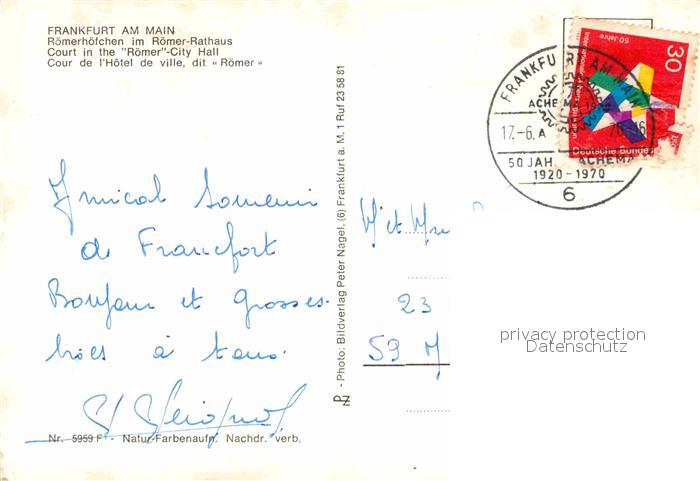 FRANKFURT AM MAIN
Römerhöfchen im Römer-Rathaus
Court in the "Römer"-City Hall
Cour de l'Hôtel de ville, dit «Römer»
Amical Souvenir
de Francfort
Bonjour et grosses
bises à tous.
Nr. 5959 F - Natur-Farbenaufn. Nachdr. verb.
PN - Photo: Bildverlag Peter Nagel, (6) Frankfurt a. M. 1 Ruf 23 58 81
FRANKFURT AM MAIN
ACHEMA 1970
17.-6.
50 JAHRE ACHEMA
1920-1970
6
30
50 Jahre
Deutsche Bundes
M et Mme
23
59
privacy protection
Datenschutz